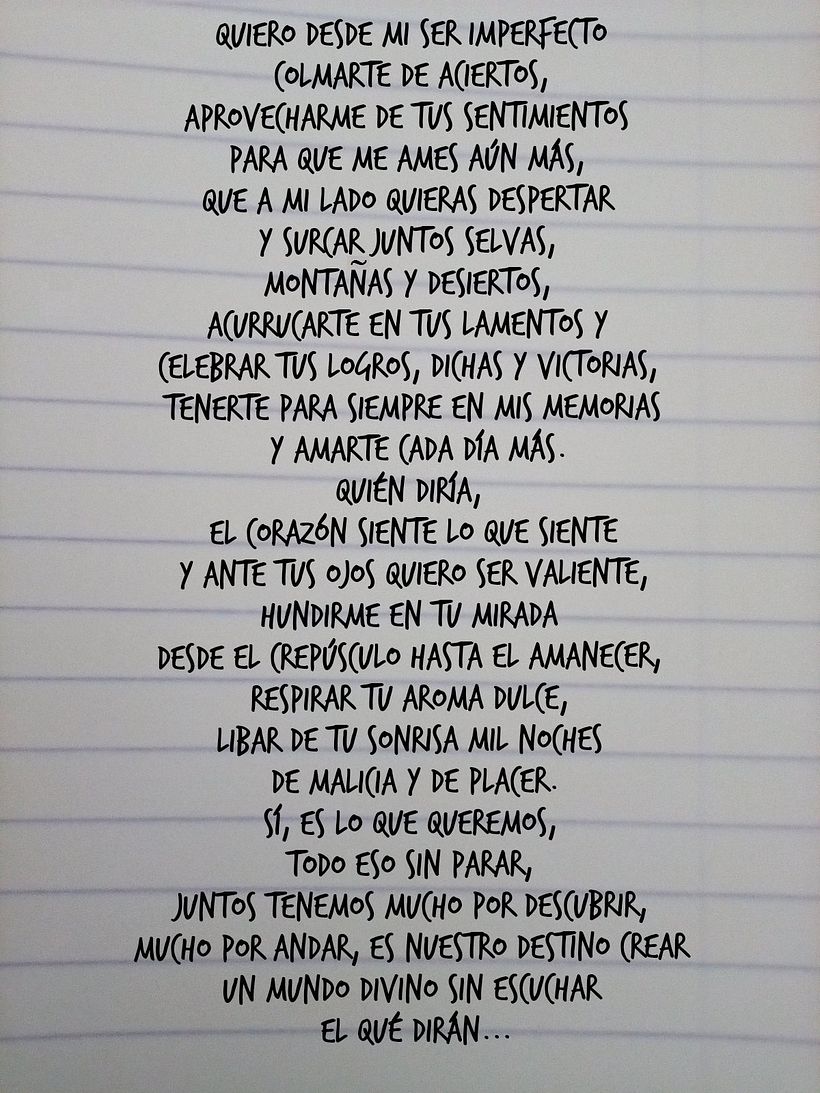 QUIERO DESDE MI SER IMPERFECTO
COLMARTE DE ACIERTOS,
APROVECHARME DE TUS SENTIMIENTOS
PARA QUE ME AMES AÚN MÁS,
QUE A MI LADO QUIERAS DESPERTAR
Y SURCAR JUNTOS SELVAS,
MONTAÑAS Y DESIERTOS,
ACURRUCARTE EN TUS LAMENTOS Y
CELEBRAR TUS LOGROS, DICHAS Y VICTORIAS,
TENERTE PARA SIEMPRE EN MIS MEMORIAS
Y AMARTE CADA DÍA MÁS.
QUIÉN DIRÍA,
EL CORAZÓN SIENTE LO QUE SIENTE
Y ANTE TUS OJOS QUIERO SER VALIENTE,
HUNDIRME EN TU MIRADA
DESDE EL CREPÚSCULO HASTA EL AMANECER,
RESPIRAR TU AROMA DULCE,
LIBAR DE TU SONRISA MIL NOCHES
DE MALICIA Y DE PLACER.
SÍ, ES LO QUE QUEREMOS,
TODO ESO SIN PARAR,
JUNTOS TENEMOS MUCHO POR DESCUBRIR,
MUCHO POR ANDAR, ES NUESTRO DESTINO CREAR
UN MUNDO DIVINO SIN ESCUCHAR
EL QUÉ DIRÁN...